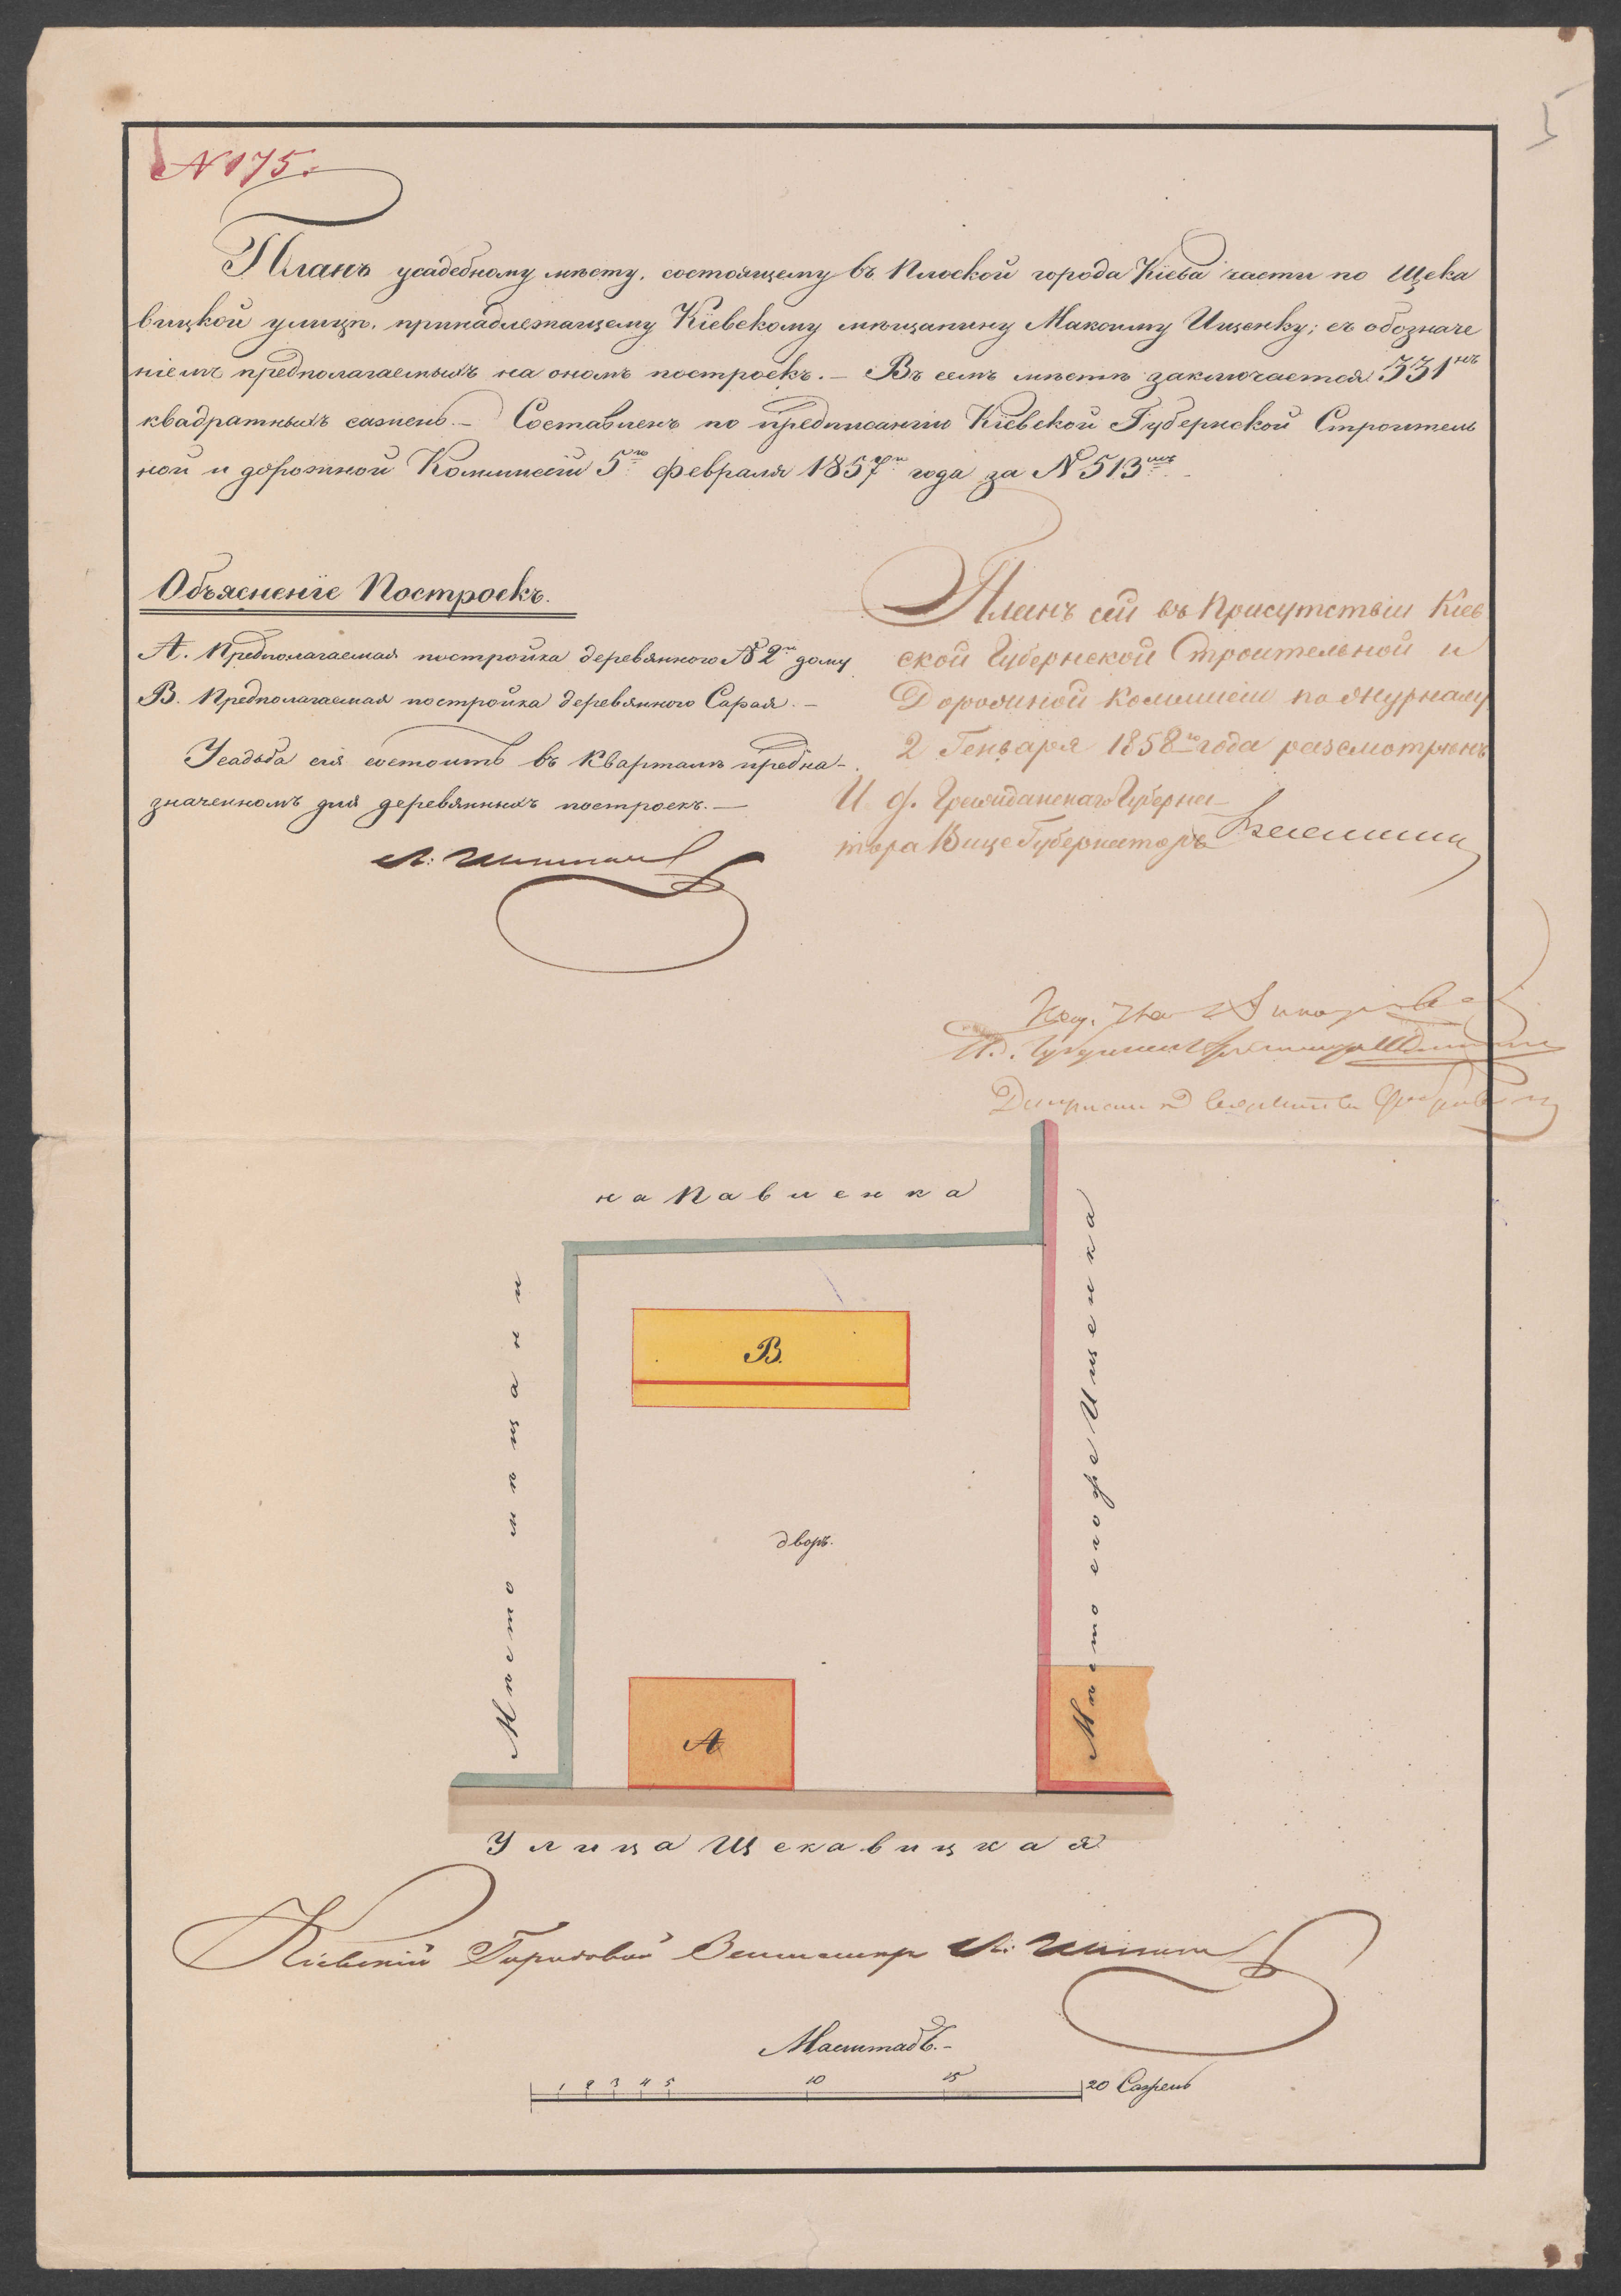 N 175.
Планъ усадебному мѣсту, состоящему въ Плоской города Кіева части по Щека
вицкой улицѣ, принадлежащему Кіевскому мѣщанину Максиму Ищенку; съ обозначе
ніемъ предполагаемыхъ на ономъ построекъ. — Въ семъ мѣстѣ заключается 331 нъ
квадратныхъ сажень. — Составленъ по предписанію Кіевской Губернской Строитель
ной и дорожной Коммиссіи 5го февраля 1857 года за N 513мъ
Объясненіе Построекъ.
А. Предполагаемая постройка деревянного N 2 дому
В. Предполагаемая постройка деревянного Сарая. —
Усадьба сія состоитъ въ Кварталѣ предна-
значенномъ для деревянныхъ построекъ. —
Планъ сей въ Присутствіи Кіев
ской Губернской Строительной и
Дорожной Коммисіи по журналу
2 Генваря 1858го года разсмотренъ
И. д. Гражданскаго Губерна-
тора Вице Губернаторъ
на Павленка
Мѣсто мѣщани
Мѣсто его же Ищенка
В.
дворъ.
А
Улица Щекавицкая
Кіевский Городовой Землемѣр
Масштабъ. —
1 2 3 4 5 10 15 20 Сажень